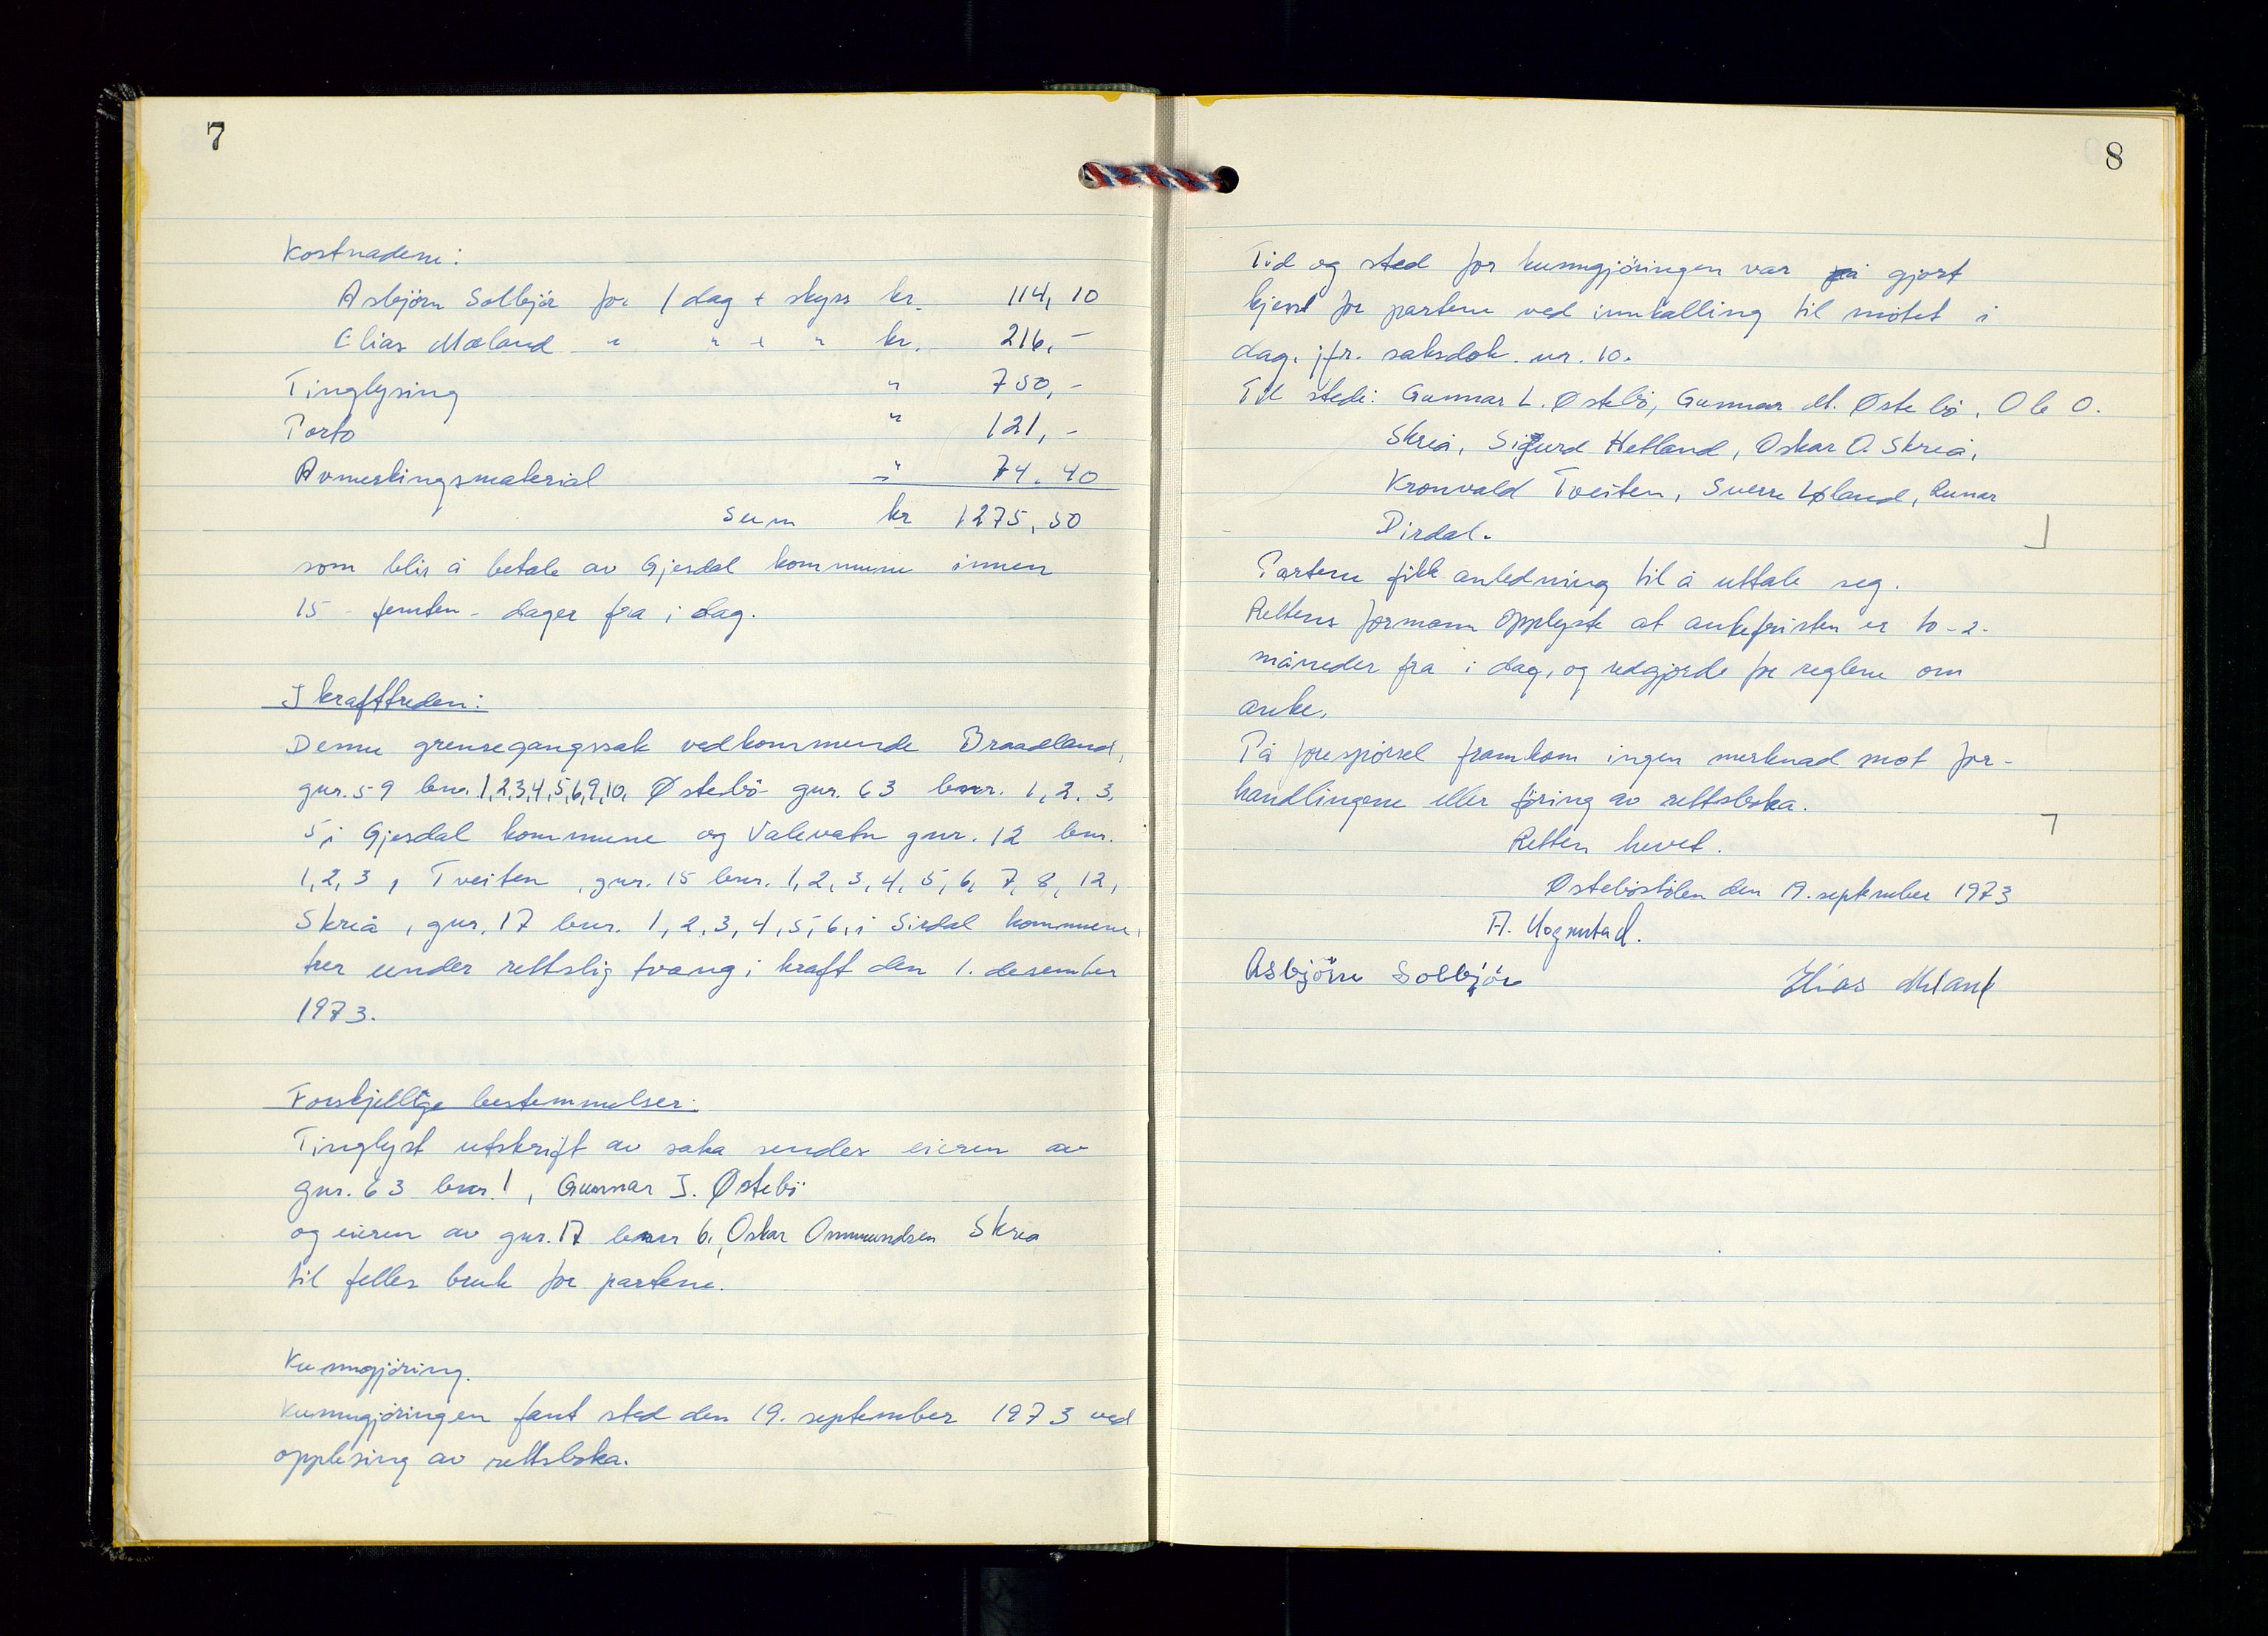 7
Kostnadene:
Asbjörn Solbjör for 1 dag + skyss kr. 114,10
Elias Mæland " " + " kr. 216,-
Tinglysing " 750,-
Porto " 121,-
Avmerkingsmaterial " 74.40
Sum kr 1275,50
som blir å betale av Gjesdal kommune innen
15 - femten - dager fra i dag.
Ikrafttreden:
Denne grensegangssak vedkommende Braadland,
gnr. 59 bnr. 1,2,3,4,5,6,9,10, Østebö gnr. 63 bnr. 1, 2, 3,
5 i Gjesdal kommune og Valevatn gnr. 12 bnr.
1, 2, 3, Tveiten, gnr. 15 bnr. 1, 2, 3, 4, 5, 6, 7, 8, 12,
Skreå, gnr. 17 bnr. 1, 2, 3, 4, 5, 6, i Sirdal kommune,
trer under rettslig tvang i kraft den 1. desember
1973.
Forskjellige bestemmelser:
Tinglyst utskrift av saka sendes eieren av
gnr. 63 bnr. 1, Gunnar I. Østebö
og eieren av gnr. 17 bnr 6, Oskar Ommundsen Skreå
til felles bruk for partene.
Kunngjöring.
Kunngjöringen fant sted den 19. september 1973 ved
opplesing av rettsboka.
8
Tid og sted for kunngjöringen var på gjort
kjent for partene ved innkalling til mötet i
dag, jfr. saksdok. nr. 10.
Til stede: Gunnar L. Østebö, Gunnar M. Østebö, Ole O.
Skreå, Sigurd Hetland, Oskar O. Skreå,
Kronvald Tveiten, Sverre Løland, Runar
Dirdal.
Partene fikk anledning til å uttale seg.
Rettens formann opplyste at ankefristen er to - 2 -
måneder fra i dag, og redgjorde for reglene om
anke.
På forespörsel framkom ingen merknad mot for-
handlingene eller föring av rettsboka.
Retten hevet.
Østeböstölen den 19. september 1973
A. Hognstad.
Asbjörn Solbjör Elias Mæland